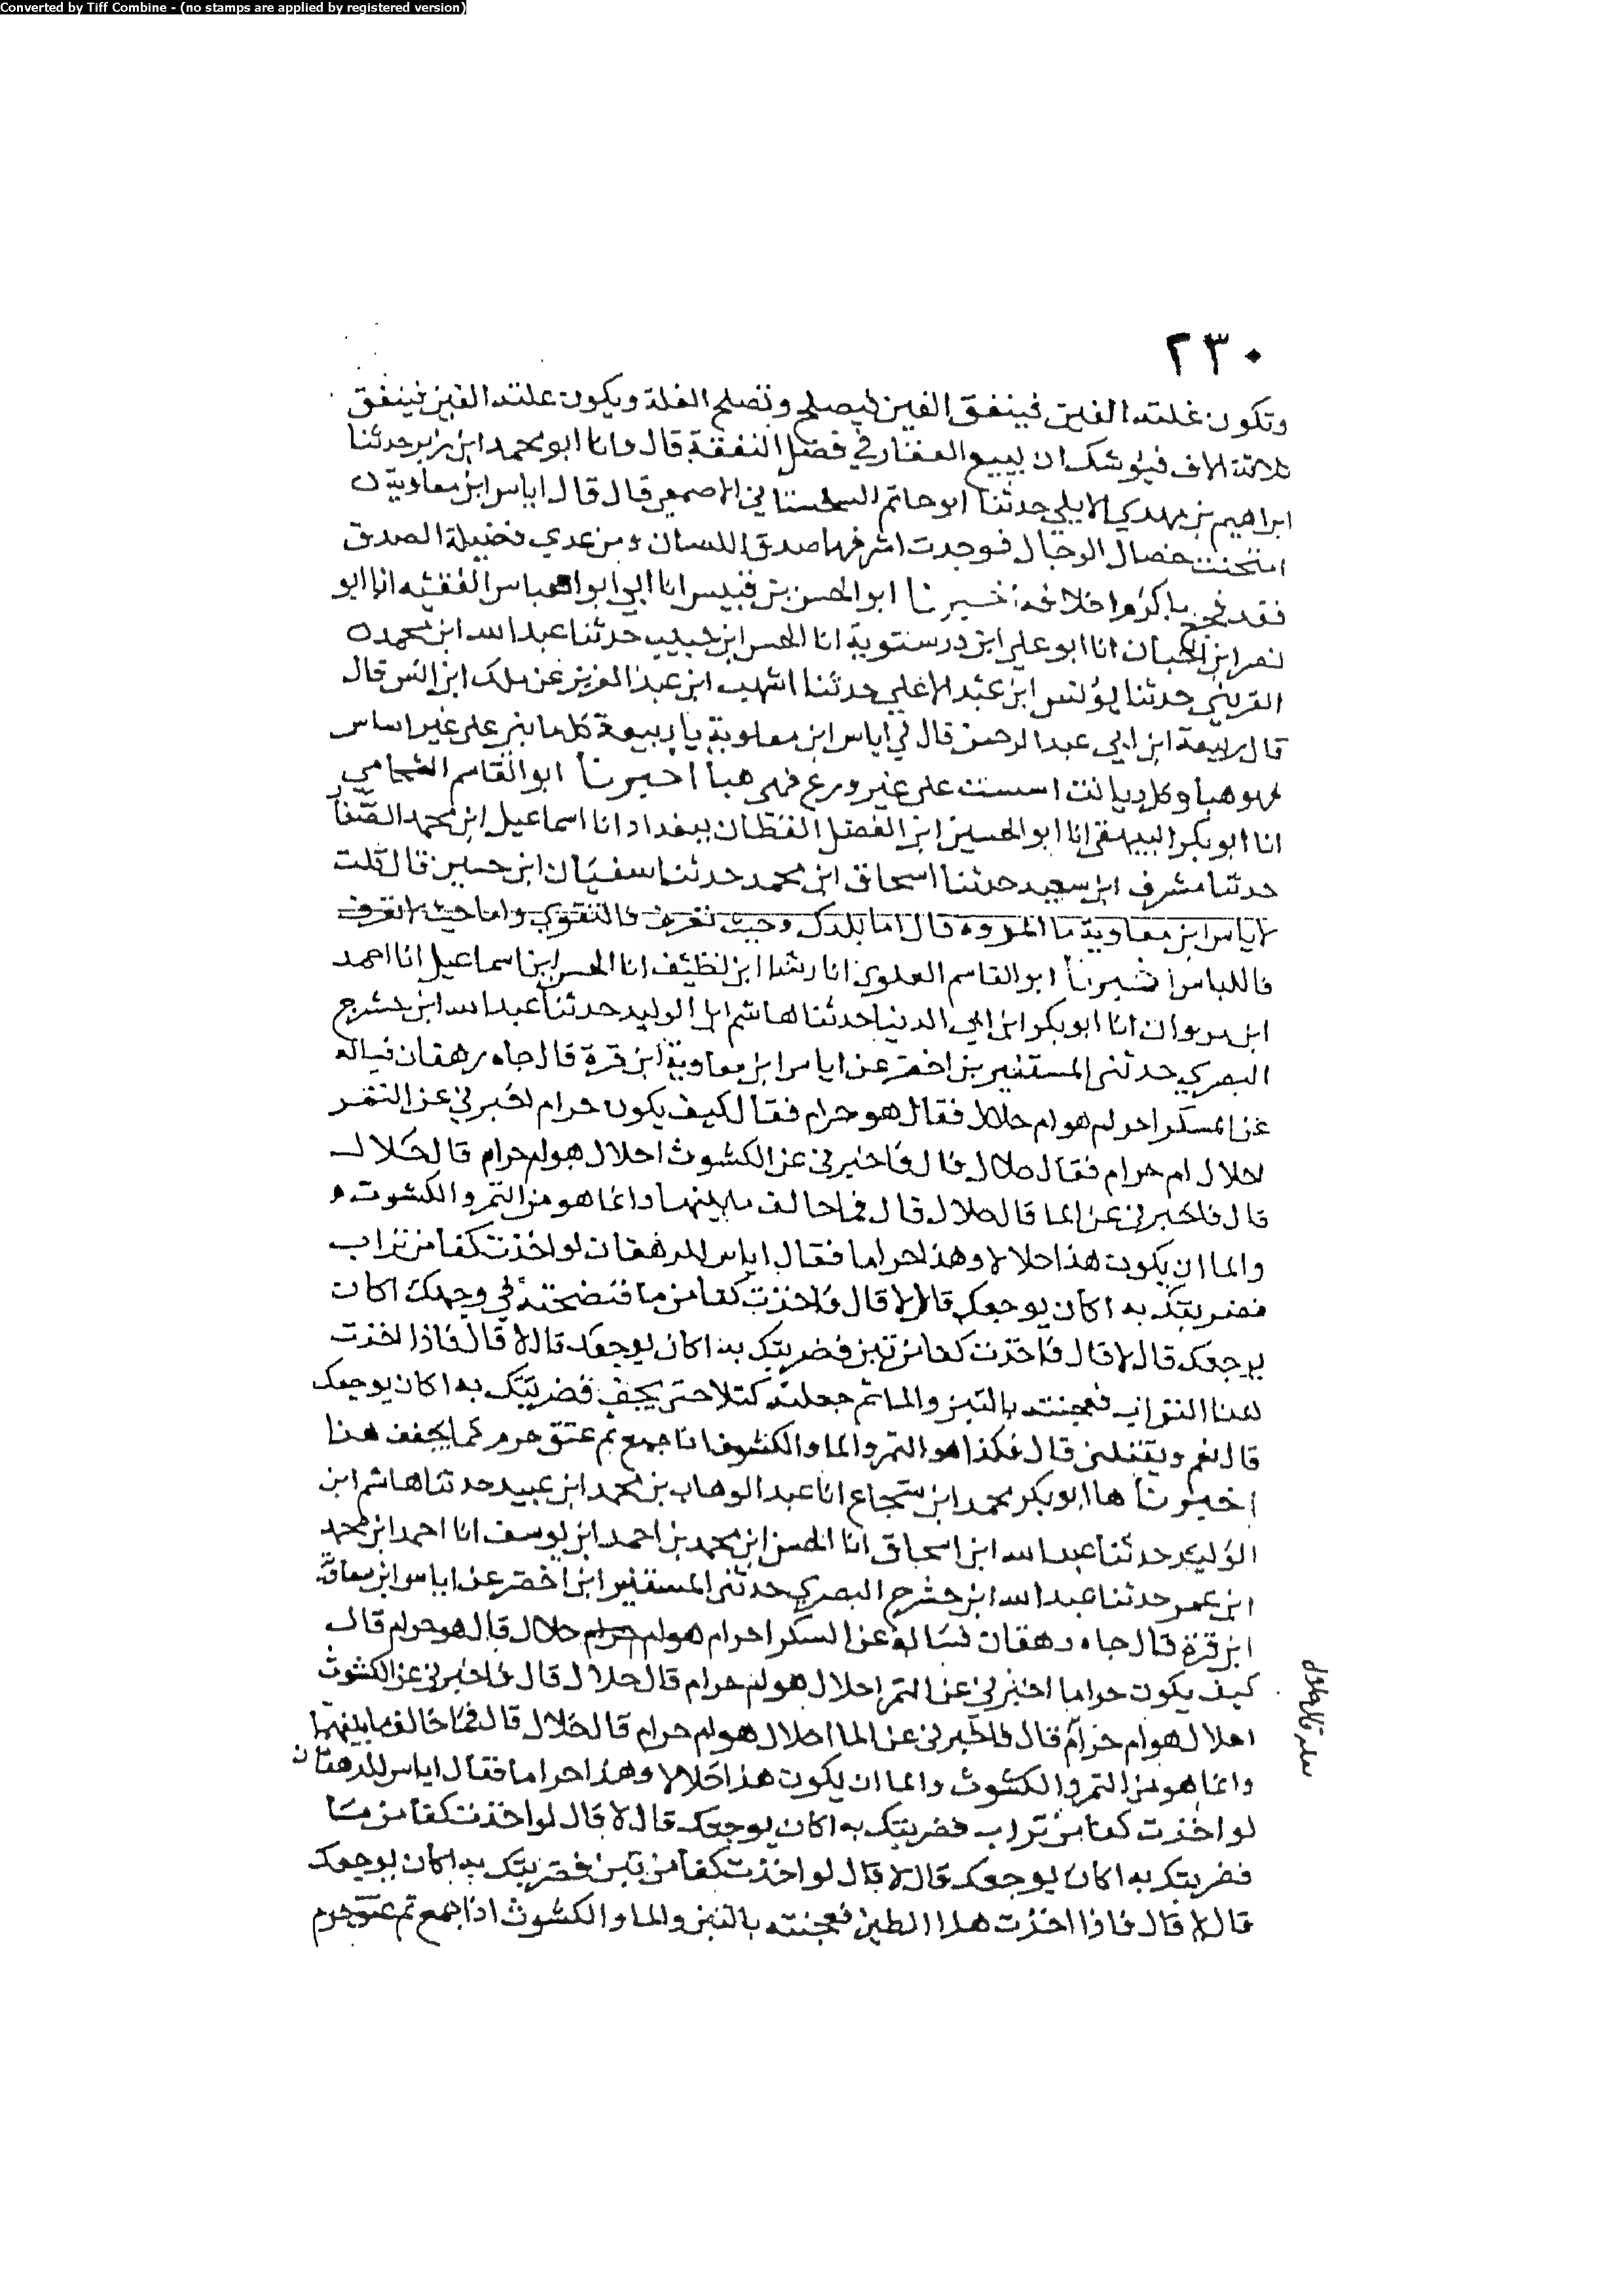 Converted by Tiff Combine - (no stamps are applied by registered version)
٢٣٠
وتكون غلته الفين فينفق الفين فيصلح وتصلح الغلة ويكون غلته الفين فينفق
ثلاثة الاف فيوشك ان يبيع العقار في فضل النفقة قال وانا ابو محمد ابن زبر حدثنا
ابراهيم بن مهدي الايلي حدثنا ابو حاتم السجستاني الاصمعي قال قال اياس ابن معاوية
امتحنت خصال الرجال فوجدت اشرفها صدق اللسان ومن عدي فضيلة الصدق
فقد فجع باكرم اخلاقه اخبرنا ابو الحسن بن قبيس انا ابي ابو العباس الفقيه انا ابو
نصر ابن الجبان انا ابو علي ابن درستوية انا الحسن ابن حبيب حدثنا عبد الله ابن محمد
القريني حدثنا يونس ابن عبد الاعلي حدثنا اشهب ابن عبد العزيز عن ملك ابن انس قال
قال ربيعة ابن ابي عبد الرحمن قال لي اياس ابن معاوية يا ربيعة كلما بني على غير اساس
فهو هبا وكل ديانت اسست على غير ورع فهي هبا اخبرنا ابو القاسم الشحامي
انا ابو بكر البيهقي انا ابو الحسين ابن الفضل القطان ببغداد انا اسماعيل ابن محمد الصفا
حدثنا مشرف ابن سعيد حدثنا اسحاق ابن محمد حدثنا سفيان ابن حسين قال قلت
لاياس ابن معاوية ما المروه قال اما بلدك وحيث تعرف فالتقوي واما حيث لا تعرف
فاللباس اخبرنا ابو القاسم العلوي انا رشا ابن نظيف انا الحسن ابن اسماعيل انا احمد
ابن مروان انا ابو بكر ابن ابي الدنيا حدثنا هاشم ابن الوليد حدثنا عبد الله ابن حشرج
البصري حدثني المستنير بن اخضر عن اياس ابن معاوية ابن قرة قال جاه دهقان فساله
عن المسكر احرام هو ام حلال فقال هو حرام فقال كيف يكون حرام اخبرني عن التمر
احلال ام حرام فقال حلال قال فاخبرني عن الكشوث احلال هو ام حرام قال حلال
قال فاخبرني عن الما قال حلال قال فما خالف ما بينهما وانما هو من التمر والكشوث و
والما ان يكون هذا حلالا وهذا حراما فقال اياس للدهقان لو اخذت كفا من تراب
فضربتك به اكان يوجعك قال لا قال فاخذت كفا من ما فنضحته في وجهك اكان
يوجعك قال لا قال فاخذت كفا من تبن فضربتك به اكان يوجعك قال لا قال فاذا اخذت
هذا التراب فعجنته بالتبن والما ثم جعلته كتلا حتى يجف فضربتك به اكان يوجعك
قال نعم ويقتلني قال فكذا هو التمر والما والكشوث اذا جمع ثم عتق حرم كما يجفف هذا
اخبرنا ها ابو بكر محمد ابن شجاع انا عبد الوهاب بن محمد ابن عبيد حدثنا هاشم ابن
الوليد حدثنا عبد الله ابن اسحاق انا الحسن ابن محمد بن احمد ابن يوسف انا احمد ابن محمد
ابن عمر حدثنا عبد الله ابن حشرج البصري حدثني المستنير ابن اخضر عن اياس ابن معاوية
ابن قرة قال جاه دهقان فساله عن السكر احرام هو ام حرام حلال قال هو حرام قال
كيف يكون حراما اخبرني عن التمر احلال هو ام حرام قال حلال قال فاخبرني عن الكشوث
احلال هو ام حرام قال فاخبرني عن الما احلال هو ام حرام قال حلال قال فما خالف ما بينهما
وانما هو من التمر والكشوث والما ان يكون هذا حلالا وهذا حراما فقال اياس للدهقان
لو اخذت كفا من تراب فضربتك به اكان يوجعك قال لا قال لو اخذت كفا من ما
فضربتك به اكان يوجعك قال لا قال لو اخذت كفا من تبن فضربتك به اكان يوجعك
قال لا قال فاذا اخذت هذا الطين فعجنته بالتبن والما والكشوث اذا جمع ثم عتق حرم
قال حلال